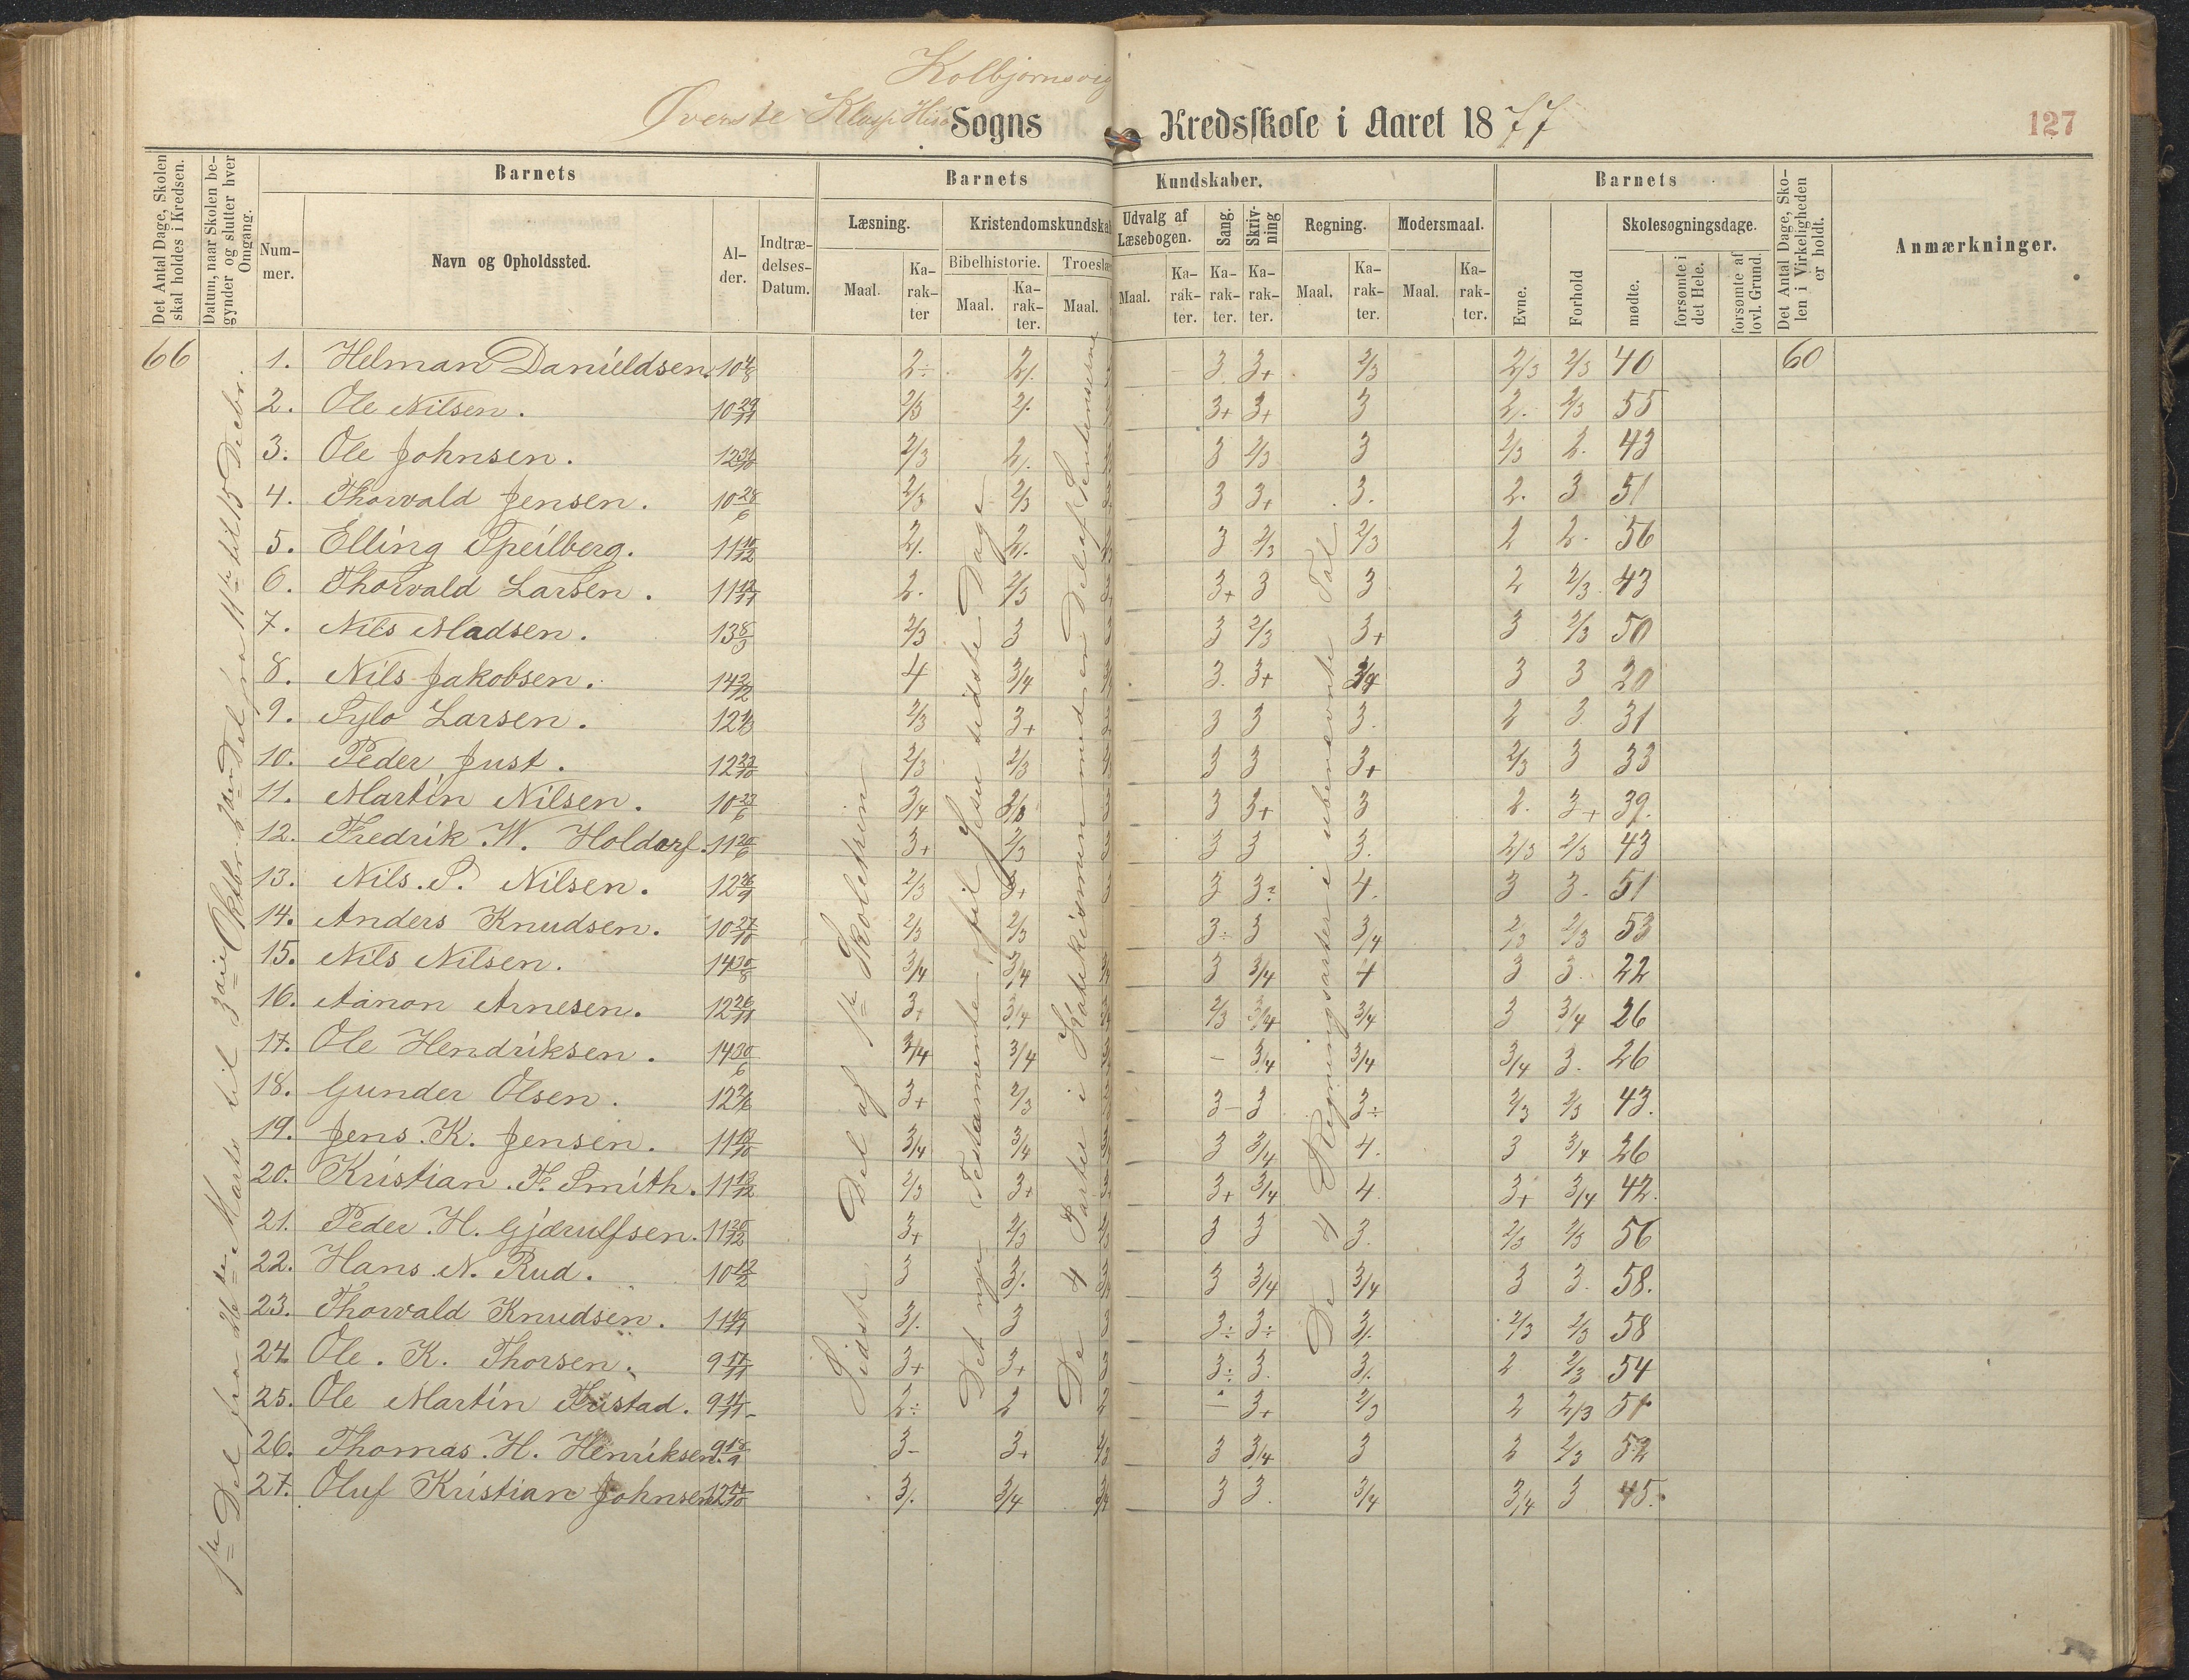 Kolbjørnsvig
Øverste Klasse Hisø Sogns Kredsskole i Aaret 1877
127
Det Antal Dage, Skolen skal holdes i Kredsen.
Datum, naar Skolen begynder og slutter hver Omgang.
Barnets
Nummer.
Navn og Opholdssted.
Alder.
Indtrædelses-Datum.
Barnets Kundskaber.
Læsning.
Maal.
Karakter
Kristendomskundskab
Bibelhistorie.
Maal.
Karakter.
Troeslæ
Maal.
Udvalg af Læsebogen.
Maal.
Karakter.
Sang.
Karakter.
Skrivning
Karakter.
Regning.
Maal.
Karakter.
Modersmaal.
Maal.
Karakter.
Barnets
Evne.
Forhold
Skolesøgningsdage.
mødte.
forsømte i det Hele.
forsømte af lovl. Grund.
Det Antal Dage, Skolen i Virkeligheden er holdt.
Anmærkninger.
66 1. Helman Danieldsen. 10 2÷ 2/. 3 3+ 2/3 2/3 2/3 40 60
2. Ole Nilsen. 10 29/11 2/3 2/. 3+ 3+ 3 2/. 2/3 55
3. Ole Johnsen. 12 2/3 2/. 3 2/3 3 2/3 2. 43
4. Thorvald Jensen. 10 28/6 2/3 2/3 3 3+ 3. 2. 3 51
5. Elling Speilberg. 11 2/. 2/. 3 2/3 2/3 2 2. 56
6. Thorvald Larsen. 11 2. 2/3 3+ 3 3 2 2/3 43
7. Nils Madsen. 13 8/3 2/3 3 3 2/3 3+ 3 2/3 50
8. Nils Jakobsen. 14 4 3/4 3. 3+ 3/4 3 3 20
9. Sylo Larsen. 12 2/3 3+ 3 3 3. 2 3 31
10. Peder Just. 12 2/3 2/3 3 3 3+ 2/3 3 33
11. Martin Nilsen. 10 23/6 3/4 3 3+ 3 2. 3+ 39.
12. Fredrik. W. Holdorf. 11 3+ 2/3 3 3 3. 2/3 2/3 43
13. Nils. S. Nilsen. 12 26/9 2/3 3+ 3 4. 3 3. 51
14. Anders Knudsen. 10 27/10 2/3 2/3 3÷ 3 3/4 2/3 2/3 53
15. Nils Nilsen. 14 30/8 3/4 3/4 3 3/4 4 3 3. 22
16. Aanon Arnesen. 12 26/11 3+ 3/4 2/3 3/4 3/4 3 3/4 26
17. Ole Hendriksen. 14 30/6 3/4 3/4 – 3/4 3/4 3/4 3. 26
18. Gunder Olsen. 12 3+ 2/3 3– 3 3÷ 2/3 2/3 43.
19. Jens. K. Jensen. 11 3/4 3/4 3 3/4 4. 3 3/4 26
20. Kristian. F. Smith. 11 2/3 3+ 3+ 3/4 4. 3+ 3/4 42.
21. Peder. H. Gjærulfsen. 11 3+ 2/3 3 3 3. 2/3 2/3 56
22. Hans. N. Rud. 10 12/2 3 3/. 3 3/4 3/4 3 3. 58.
23. Thorvald Knudsen. 11 3/. 3 3÷ 3÷ 3/. 2/3 2/3 58
24. Ole. K. Thorsen. 9 17/11 3+ 3+ 3÷ 3. 3/. 2 2/3 54
25. Ole Martin Fustad. 9 2÷ 2 – 3+ 2/3 2 2/3 51
26. Thomas. H. Henriksen. 9 18/9 3– 3+ 2/3 3 3/4 3 2 2/3 52
27. Oluf Kristian Johnsen 12 3/. 3/4 3/4 3 3. 3/4 3/4 3 45.
1ste Del fra Marts til 3die Oktbr. 2den Del fra 11te til 15 Decbr.
Sidste Del af 1ste Skoletrin
Det nye Testamente til Jesu sidste Dage
De 4 Parter i Katekismen med en Del af Sentenserne
De 4 Regningsarter i ubenævnte Tal